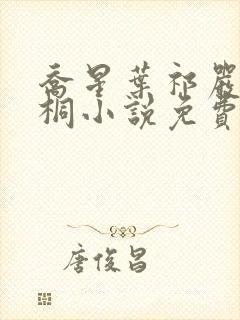 喬星葉祁嚴
桐小說免費
唐俊昌